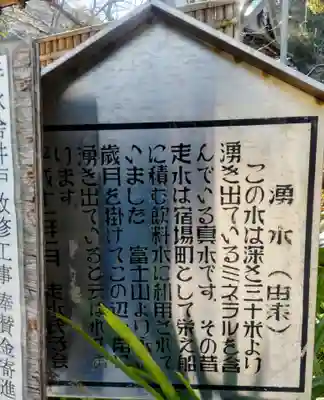 湧水(由来)
この水は深さ三十米より
湧き出ているミネラルを含
んでいる真水です。その昔
走水は宿場町として栄え船
に積む飲料水に利用されて
いました。富士山より
歳月を掛けてこの辺一角に
湧き出ていると云われて
います。
水舎井戸改修工事奉賛金寄進